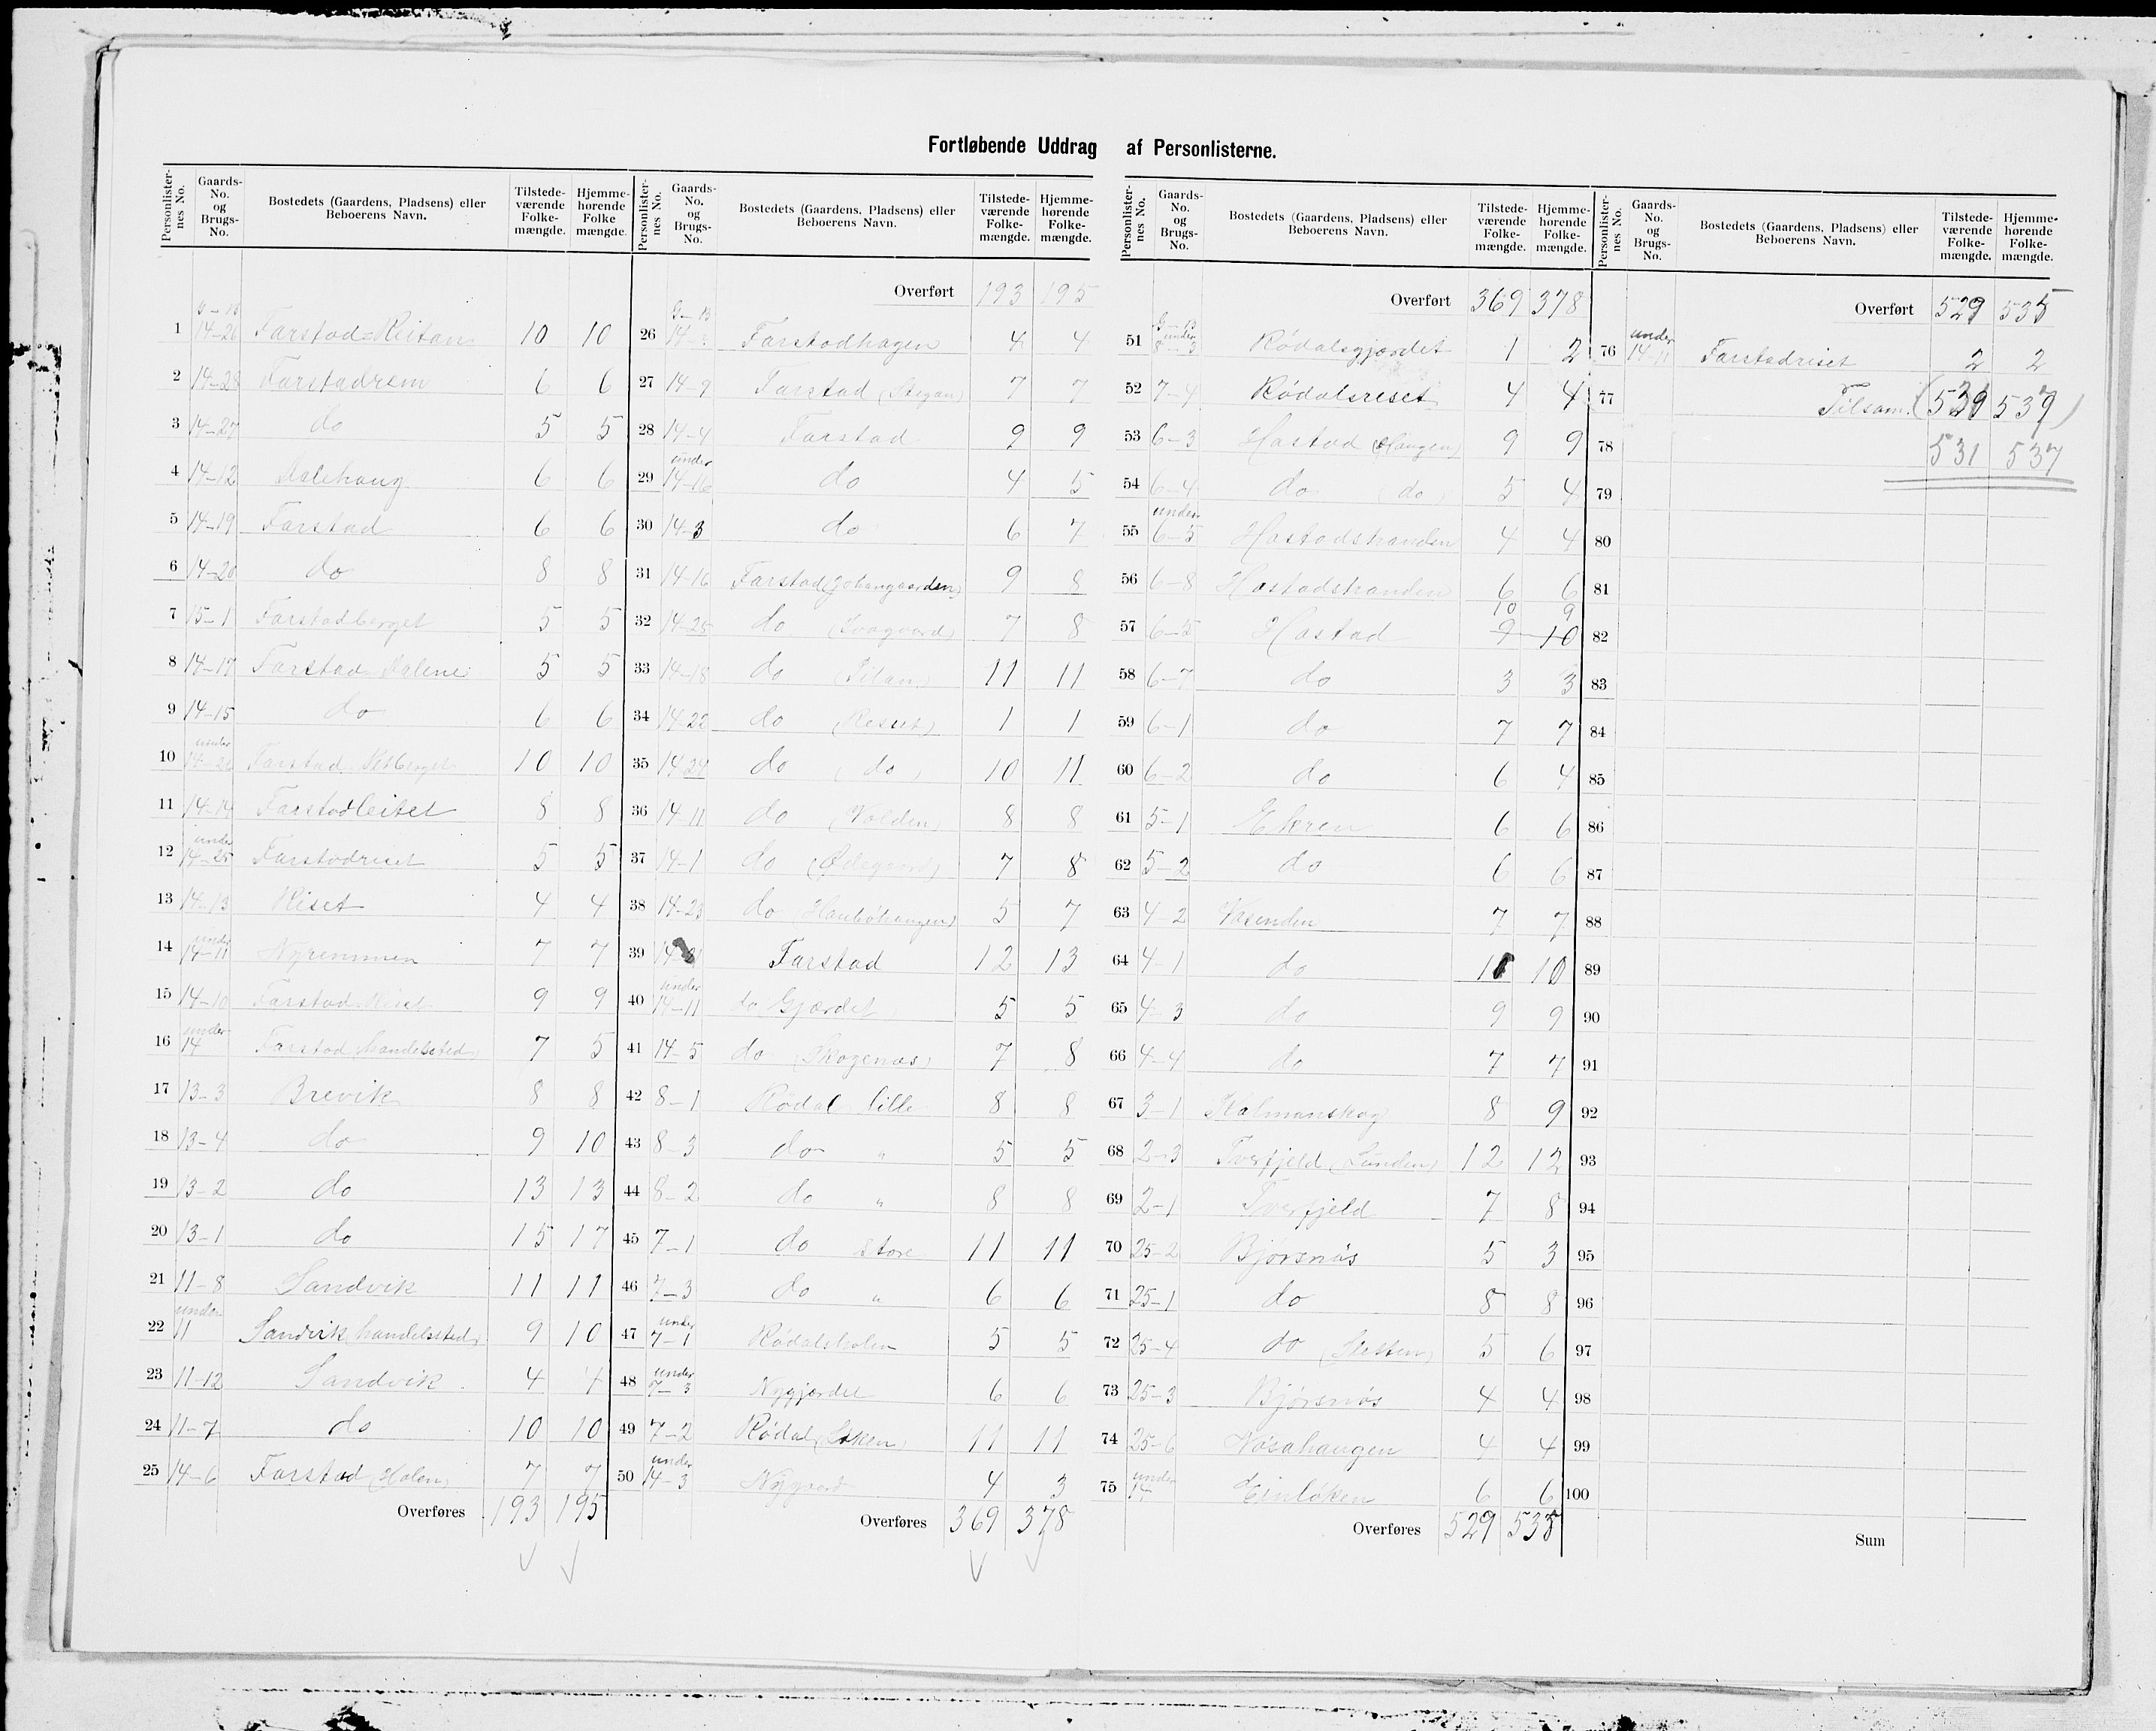 Fortløbende Uddrag af Personlisterne.
Personlister-nes No. | Gaards-No. og Brugs-No. | Bostedets (Gaardens, Pladsens) eller Beboerens Navn. | Tilstede-værende Folke-mængde. | Hjemme-hørende Folke mængde.
1 G-B 14-26 Farstad-Reitan 10 10
2 14-28 Farstadrem 6 6
3 14-27 do 5 5
4 14-12 Dalehaug 6 6
5 14-19 Farstad 6 6
6 14-20 do 8 8
7 15-1 Farstadberget 5 5
8 14-17 Farstad Dalene 5 5
9 14-15 do 6 6
10 under Farstad 10 10
11 14-14 Farstadleitet 8 8
12 under 14-25 Farstadriset 5 5
13 14-13 Riset 4 4
14 under 14-11 Nyremmen 7 7
15 14-10 Farstad-Riset 9 9
16 under 14 Farstad handelssted 7 5
17 13-3 Brevik 8 8
18 13-4 do 9 10
19 13-2 do 13 13
20 13-1 do 15 17
21 11-8 Sandvik 11 11
22 under 11 Sandvik handelssted 9 10
23 11-12 Sandvik 4 4
24 11-7 do 10 10
25 14-6 Farstad (Holen) 7 7
Overføres 193 195
Personlister-nes No. | Gaards-No. og Brugs-No. | Bostedets (Gaardens, Pladsens) eller Beboerens Navn. | Tilstede-værende Folke-mængde. | Hjemme-hørende Folke-mængde.
Overført 193 195
26 G-B Farstadhagen 4 4
27 14-9 Farstad (Stegan) 7 7
28 14-4 Farstad 9 9
29 under 14-16 do 4 5
30 14-3 do 6 7
31 14-16 Farstad (Johangaarden) 9 8
32 14-25 do (Ivagaard) 7 8
33 14-18 do 11 11
34 14-22 do (Reset) 1 1
35 14-24 do (do) 10 11
36 14-11 do (Volden) 8 8
37 14-1 do (Ødegaard) 7 8
38 14-23 do (Haubøhaugen) 5 7
39 Farstad 12 13
40 under 14-11 do Gjærdet 5 5
41 14-5 do (Skogenæs) 7 8
42 8-1 Rødal lille 8 8
43 8-3 do " 5 5
44 8-2 do " 8 8
45 7-1 do store 11 11
46 7-3 do " 6 6
47 under 7-1 Rødalsholen 5 5
48 under 7-3 Nygjærdet 6 6
49 7-2 Rødal (Løken) 11 11
50 under 14-3 Nygaard 4 3
Overføres 369 378
Personlister-nes No. | Gaards-No. og Brugs-No. | Bostedets (Gaardens, Pladsens) eller Beboerens Navn. | Tilstede-værende Folke-mængde. | Hjemme-hørende Folke-mængde.
Overført 369 378
51 G-B under 8-3 Rødalsgjærdet 1 2
52 7-4 Rødalsreset 4 4
53 6-3 Hastad (Haugen) 9 9
54 6-4 do (do) 5 4
55 under 6-5 Hastadstranden 4 4
56 6-8 Hastadstranden 6 6
10 9
57 6-5 Hastad 9 10
58 6-7 do 3 3
59 6-1 do 7 7
60 6-2 do 6 4
61 5-1 Ekren 6 6
62 5-2 do 6 6
63 4-2 Vasenden 7 7
64 4-1 do 10
65 4-3 do 9 9
66 4-4 do 7 7
67 3-1 Kalmanskog 8 9
68 2-3 Tverfjeld (Lunden) 12 12
69 2-1 Tverfjeld 7 8
70 25-2 Bjørsnøs 5 3
71 25-1 do 8 8
72 25-4 do (Sletten) 5 6
73 25-3 Bjørsnøs 4 4
74 25-6 Nøsahaugen 4 4
75 under 14 Einløken 6 6
Overføres 529 535
Personlister-nes No. | Gaards-No. og Brugs-No. | Bostedets (Gaardens, Pladsens) eller Beboerens Navn. | Tilstede-værende Folke-mængde. | Hjemme-hørende Folke-mængde.
Overført 529 535
76 under 14-11 Farstadriset 2 2
77 Tilsam. (531 537)
78 531 537
79
80
81
82
83
84
85
86
87
88
89
90
91
92
93
94
95
96
97
98
99
100
Sum